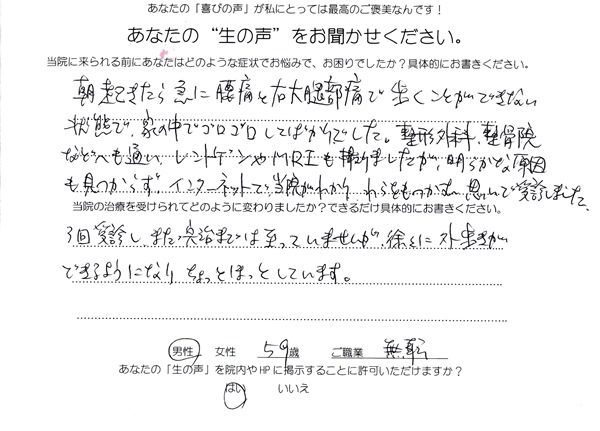 あなたの「喜びの声」が私にとっては最高のご褒美なんです！
あなたの“生の声”をお聞かせください。
当院に来られる前にあなたはどのような症状でお悩みで、お困りでしたか？具体的にお書きください。
朝起きたら急に腰痛と右大腿部痛で歩くことができない
状態で、家の中でゴロゴロしてばかりでした。整形外科、整骨院
などへも通い、レントゲンやMRIも撮りましたが、明らかな原因
も見つからず、インターネットで当院がわかり、わらをもつかむ思いで受診しました。
当院の治療を受けられてどのように変わりましたか？できるだけ具体的にお書きください。
3回受診し、まだ完治までは至っていませんが、徐々に外歩きが
できるようになり、ちょっとほっとしています。
男性 女性 59歳 ご職業 無職
あなたの「生の声」を院内やHPに掲示することに許可いただけますか？
はい いいえ